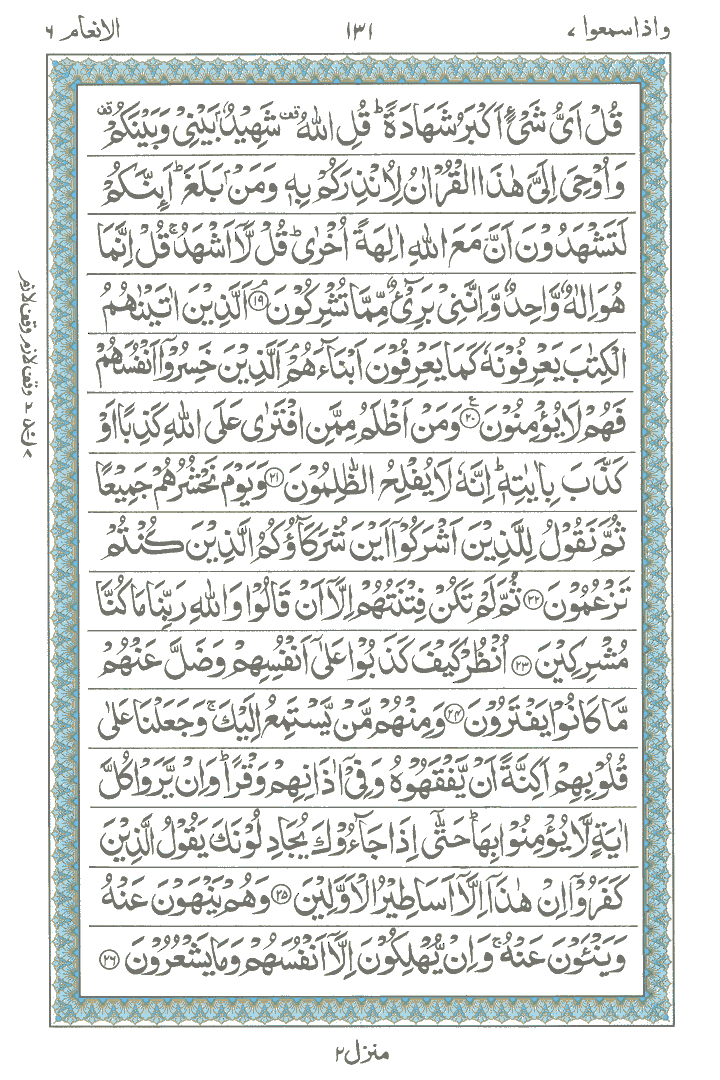 واذاسمعوا ٧
١٣١
الانعام ٦
قُلْ اَىُّ شَىْءٍ اَكْبَرُ شَهَادَةً ؕ قُلِ اللّٰهُ ۟ۙ شَهِيْدٌۢ بَيْنِىْ وَبَيْنَكُمْ ۟
وَاُوْحِىَ اِلَىَّ هٰذَا الْقُرْاٰنُ لِاُنْذِرَكُمْ بِهٖ وَمَنْۢ بَلَغَ ؕ اَئِنَّكُمْ
لَتَشْهَدُوْنَ اَنَّ مَعَ اللّٰهِ اٰلِهَةً اُخْرٰى ؕ قُلْ لَّاۤ اَشْهَدُ ۚ قُلْ اِنَّمَا
هُوَ اِلٰهٌ وَّاحِدٌ وَّاِنَّنِىْ بَرِىْٓءٌ مِّمَّا تُشْرِكُوْنَ ۘ ﴿۱۹﴾ اَلَّذِيْنَ اٰتَيْنٰهُمُ
الْكِتٰبَ يَعْرِفُوْنَهٗ كَمَا يَعْرِفُوْنَ اَبْنَآءَهُمْ ۘ اَلَّذِيْنَ خَسِرُوْۤا اَنْفُسَهُمْ
فَهُمْ لَا يُؤْمِنُوْنَ ﴿۲۰﴾ ع وَمَنْ اَظْلَمُ مِمَّنِ افْتَرٰى عَلَى اللّٰهِ كَذِبًا اَوْ
كَذَّبَ بِاٰيٰتِهٖ ؕ اِنَّهٗ لَا يُفْلِحُ الظّٰلِمُوْنَ ﴿۲۱﴾ وَيَوْمَ نَحْشُرُهُمْ جَمِيْعًا
ثُمَّ نَقُوْلُ لِلَّذِيْنَ اَشْرَكُوْۤا اَيْنَ شُرَكَآؤُكُمُ الَّذِيْنَ كُنْتُمْ
تَزْعُمُوْنَ ﴿۲۲﴾ ثُمَّ لَمْ تَكُنْ فِتْنَتُهُمْ اِلَّاۤ اَنْ قَالُوْا وَاللّٰهِ رَبِّنَا مَا كُنَّا
مُشْرِكِيْنَ ﴿۲۳﴾ اُنْظُرْ كَيْفَ كَذَبُوْا عَلٰٓى اَنْفُسِهِمْ وَضَلَّ عَنْهُمْ
مَّا كَانُوْا يَفْتَرُوْنَ ﴿۲۴﴾ وَمِنْهُمْ مَّنْ يَّسْتَمِعُ اِلَيْكَ ۚ وَجَعَلْنَا عَلٰى
قُلُوْبِهِمْ اَكِنَّةً اَنْ يَّفْقَهُوْهُ وَفِىْۤ اٰذَانِهِمْ وَقْرًا ؕ وَاِنْ يَّرَوْا كُلَّ
اٰيَةٍ لَّا يُؤْمِنُوْا بِهَا ؕ حَتّٰۤى اِذَا جَآءُوْكَ يُجَادِلُوْنَكَ يَقُوْلُ الَّذِيْنَ
كَفَرُوْۤا اِنْ هٰذَاۤ اِلَّاۤ اَسَاطِيْرُ الْاَوَّلِيْنَ ﴿۲۵﴾ وَهُمْ يَنْهَوْنَ عَنْهُ
وَيَنْئَوْنَ عَنْهُ ۚ وَاِنْ يُّهْلِكُوْنَ اِلَّاۤ اَنْفُسَهُمْ وَمَا يَشْعُرُوْنَ ﴿۲۶﴾
وقف لازم
وقف لازم
منزل ٢